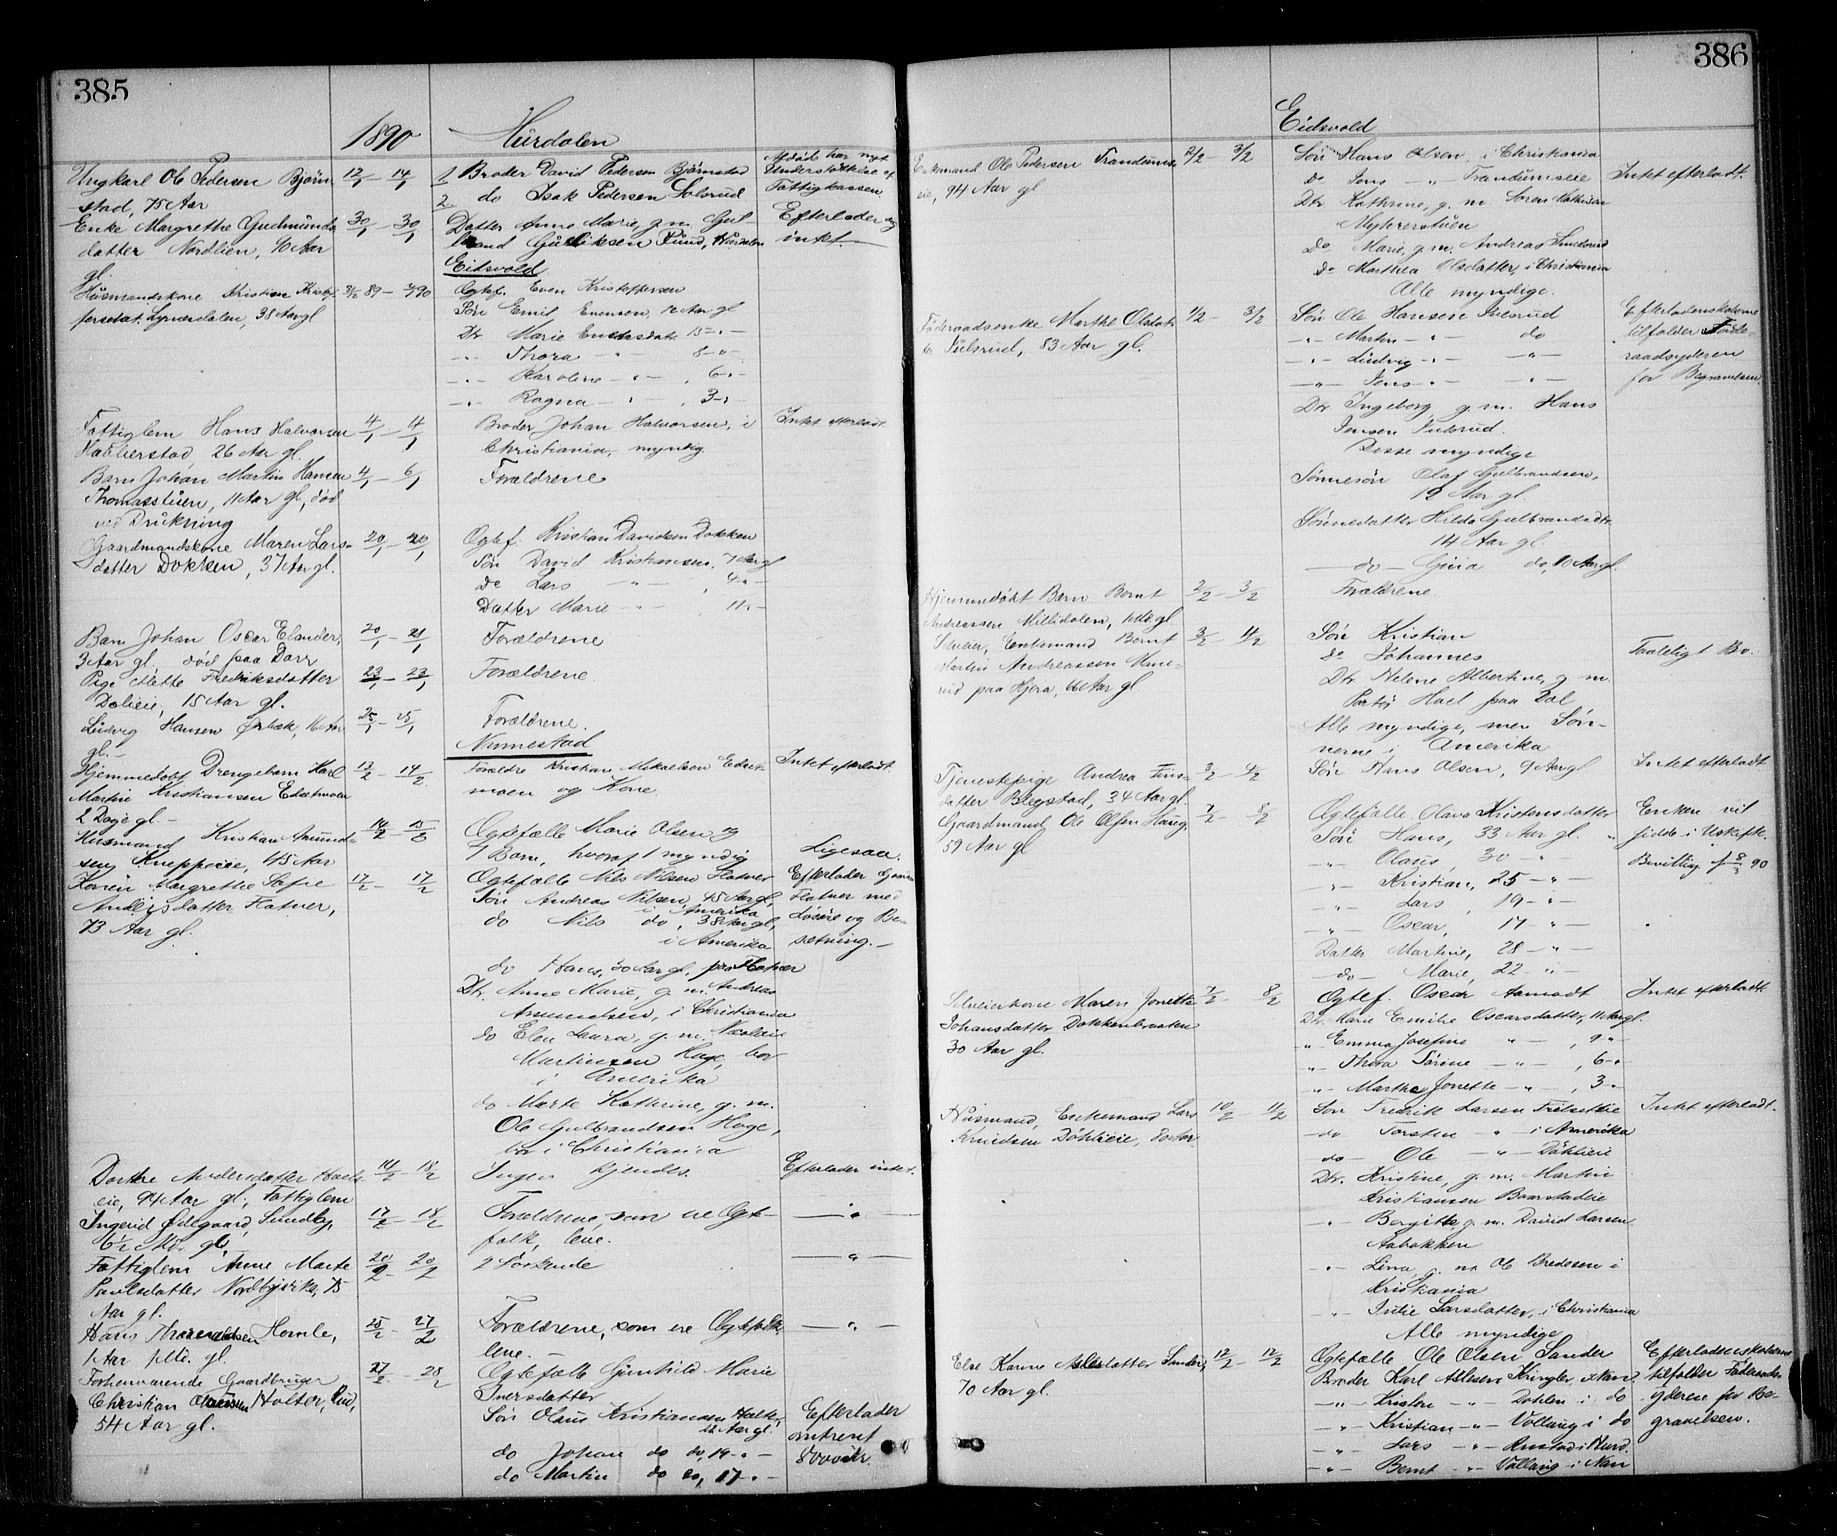 385
1890 Hurdalen
Ungkarl Ole Pedersen Bjørn- 12/1 – 14/1 1 Broder David Pedersen Bjørnstad Afdøde har nydt
stad, 75 Aar 2. do Isak Pedersen Solsrud Understøttelse af
Fattigkassen.
Enke Margrethe Gudmunds- 30/1 – 30/1 Datter Anne Marie, g. m. Gul- Efterlader sig
datter Nordlien, 70 Aar brand Gulliksen Rud, Hurdalen intet.
gl. Eidsvold.
Husmandskone Kristine Kristof- 31/12 89 – 2/1 90 Ægtef. Even Kristoffersen
fersdat. Lynæsdalen, 38 Aar gl Søn Emil Evensen, 12 Aar gl
Dtr. Marie Evensdatr. 15 – " –
– " – Thora – " – 8 – " –
– " – Karoline – " – , 6 – " –
– " – Ragna – " – , 3 – " –
Fattiglem Hans Halvorsen 4/1 – 4/1 Broder Johan Halvorsen, i Intet efterladt.
26 Aar gl. Christiania, myndig
Barn Johan Martin Hansen 4/1 – 6/1 Forældrene
Thomasstuen, 11 Aar gl, død
ved Drukning
Gaardmandskone Maren Lars- 20/1 – 20/1 Ægtef. Kristian Davidsen Dokken
datter Dokken, 37 Aar gl. Søn David Kristiansen, 7 Aar gl
do Lars – " – , 4 – " –
Datter Marie – " – , 11 – " –
Barn Johan Oscar Elander, 20/1 – 21/1 Forældrene
3 Aar gl, død paa Dorr
Pige Mette Fredriksdatter 23/1 – 23/1 Forældrene.
15 Aar gl.
Ludvig Hansen Ørbæk, 16 Aar 25/1 – 25/1 Forældrene.
gl. – Nannestad
Hjemmedøbt Drengebarn Karl 13/2 – 14/2 Forældre Kristian Mikaelsen Intet efterladt.
Martin Kristiansen moen og Kone.
2 Dage gl. –
Husmand Kristian Amund- 14/2 – 15/2 Ægtefælle Marie Olsen og
sen 45 Aar 7 Børn, hvoraf 1 myndig Ligesaa.
Konen Margrethe Sofie 17/2 – 17/2 Ægtefælle Nils Nilsen Flatner Efterlader Gaarden
Andersdatter Flatner, Søn Andreas Nilsen, 45 Aar gl, Flatner med
73 Aar gl. i Amerika Løsøre og Be-
do Nils do, 38 Aar gl, sætning. –
i Amerika
do Hans, 30 Aar gl, paa Flatner
Dtr. Anne Marie, g. m. Andreas
Amundsen, i Christiania
do Elen Laura, g. m. Nicolai
Martinsen Hage, bor
i Amerika
do Marte Kathrine, g. m.
Ole Gulbrandsen Hage,
bor i Christiania
Dorthe Andersdatter 14/2 – 18/2 Ingen kjendes. Efterlader intet.
eie, 94 Aar gl, Fattiglem
Ingerid Ødegaard, Sundby, 17/2 – 18/2 Forældrene, som ere Ægte- – " –
6 1/2 Md. gl. folk, leve.
Fattiglem Anne Marte 20/2 – 20/2 2 Søskende – " –
Paulsdatter 75
Aar gl.
Hans Thorvaldsen Homle, 25/2 – 27/2 Forældrene, som ere Ægtefolk, – " –
1 Aar gl. leve. –
Forhenværende Gaardbruger 27/2 – 28/2 Ægtefælle Gunhild Marie
Christian Olausen Holter, Lud, Iversdatter
54 Aar gl. Søn Olaus Kristiansen Holter, Efterlader
22 Aar gl. omtrent
do Johan do do, 19 – " – 8000 kr
do Martin do do, 17 – " –
386
Eidsvold
Enkemand Ole Pedersen Trandums- 2/2 – 3/2 Søn Hans Olsen, i Christiania Intet efterladt.
eie, 94 Aar gl do Jens – " – Trandumseie
Dtr. Kathrine, g. m. Søren Mathisen
Myhrerstuen
do Marie, g. m. Andreas
do Marthea Olsdatter, i Christiania
Alle myndige.
Føderaadsenke Marthe Olsdat- 1/2 – 3/2 Søn Ole Hansen Julsrud Efterladenskaberne
ter Julsrud, 83 Aar gl. – " – Martin – " – do tilfalder Føde-
– " – Ludvig – " – – " – raadsyderen
– " – Jens – " – – " – for Begravelsen
Dtr. Ingeborg, g. m. Hans
Jensen Julsrud.
Disse myndige
Sønnesøn Olaf Gulbrandsen,
19 Aar gl.
Sønnedatter Hilda Gulbrandsdtr.
14 Aar gl
– do – Gina do, 10 Aar gl.
Hjemmedøbt Barn Bernt 2/2 – 3/2 Forældrene
Andreassen Millidalen, gl
Selveier, Enkemand Bernt 3/2 – 4/2 Søn Kristian
Martin Andreassen do Johannes Taaleligt Bo.
rud paa Hjera, 66 Aar gl. Dtr. Nelene Albertine, g. m.
Hoel paa Dal
Alle myndige, men Søn-
nerne i Amerika
Tjenestepige Andrea Jens- 3/2 – 4/2 Søn Hans Olsen, 9 Aar gl Intet efterladt
datter Bøgstad, 34 Aar gl.
Gaardmand Ole Olsen Haug 7/2 – 8/2 Ægtefælle Olava Kristensdatter Enken vil
59 Aar gl Søn Hans, 33 Aar gl. sidde i Uskifte.
– " – Olaus, 30 – " – Bevilling 8/3 90
– " – Kristian, 25 – " –
– " – Lars, 19 – " –
– " – Oscar, 17 – " –
Datter Martine, 28 – " –
– do – Marie, 22 – " –
Selveierkone Maren Jonette 7/2 – 8/2 Ægtef. Oscar Aamodt Intet efterladt.
Johansdatter Dokkenbraaten Dtr. Marie Emilie Oscarsdatter, 11 Aar gl.
30 Aar gl. " Emma Josefine " – , 9 "
" Thora Sørine – " – , 6 – "
" Marthe Jonette – " – , 3 "
Husmand, Enkemand Lars 10/2 – 11/2 Søn Fredrik Larsen Intet efterladt.
Knudsen Døhlieie, – do – Torsten " – i Amerika
do – Ole – " – Døhlieie
Dtr. Kristine, g. m. Martin
Kristiansen
– " – Bergitte, g. m. David Larsen
Aabakken
– " – Lina, g. m. Ole Bredesen i
Kristiania
– " – Julie Larsdatter, i Christiania
Alle myndige
Else Karine Aslesdatter Sander, 12/2 – 12/2 Ægtefælle Ole Olsen Sander Efterladenskaberne
70 Aar gl. Broder Karl Aslesen Kringler i Nan. tilfalder Føderaads-
– " – Kristen – " – Dahlen i do yderen for Be-
– " – Kristian – " – Vollaug i do gravelsen.
– " – Lars – " – Rustad i Hurd.
– " – Bernt – " – Vollaug i Nan